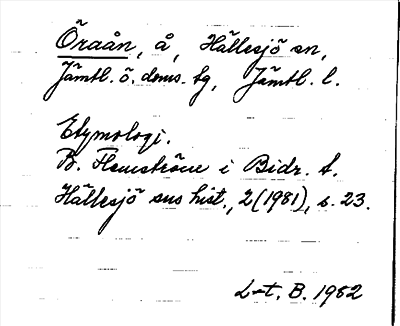 Öraån, å, Hällesjö sn,
Jämtl. ö. doms. tg, Jämtl. l.
Etymologi.
B. Flemström i Bidr. t.
Hällesjö sns hist., 2 (1981), s. 23.
L-t, B. 1982